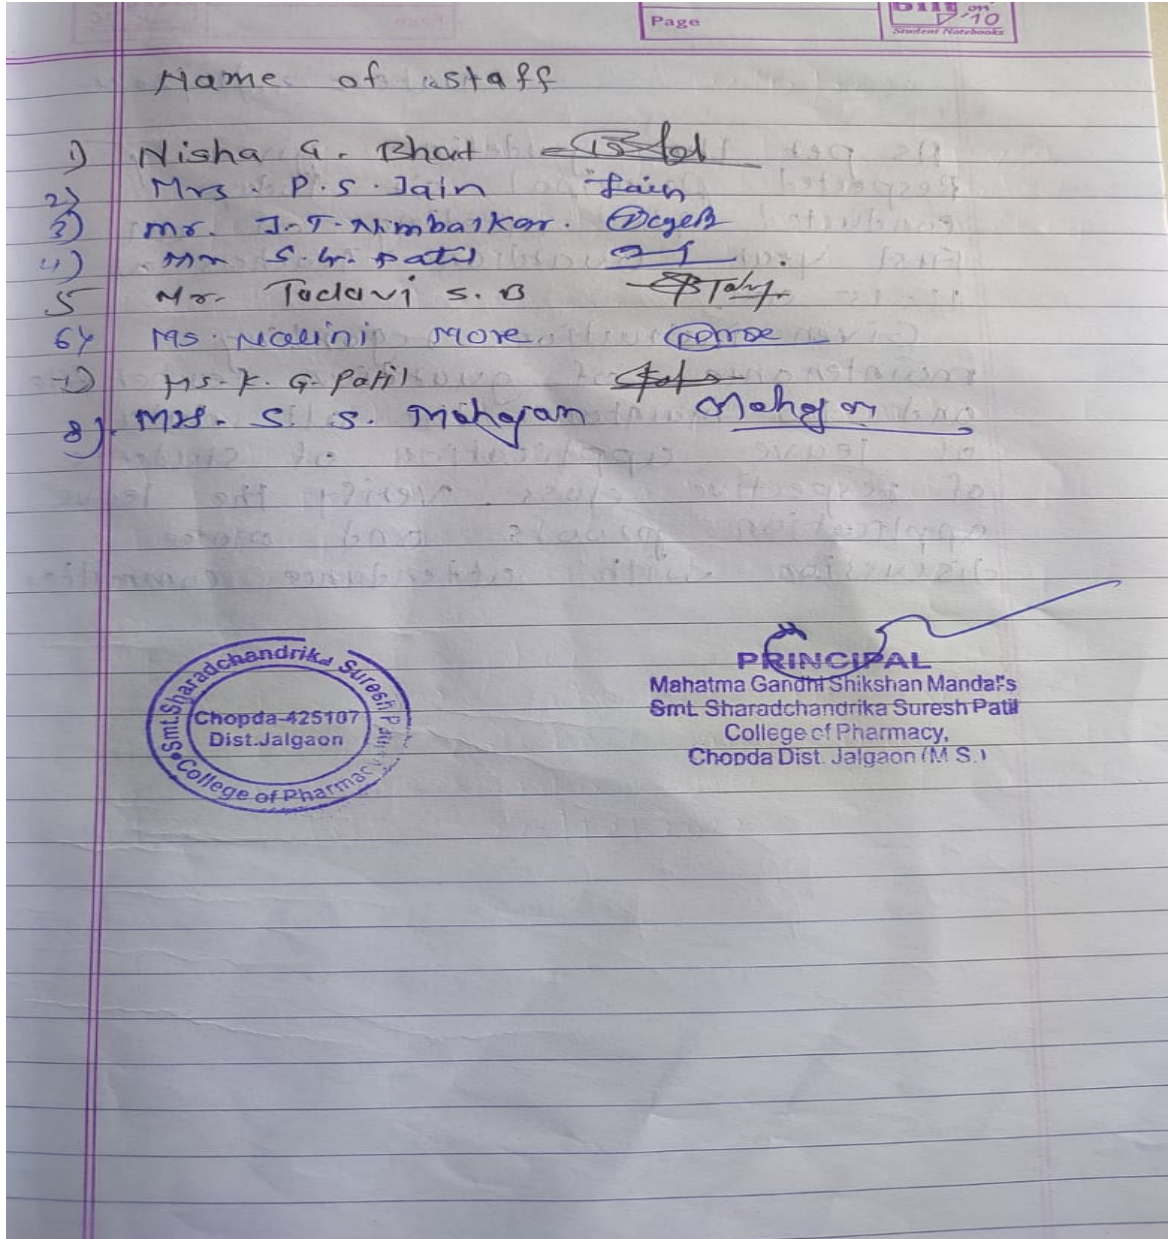 Page
Student Notebooks
Name of staff
1) Nisha G. Bhat
2) Mrs. P. S. Jain Jain
3) Mr. J. T. Nimbalkar.
4) S. G. Patil
5 Mr. Tadavi S. B
6) Ms. Nalini More
7) Ms. K. G. Patil
8) Mrs. S. S. Mahajan Mahajan
Smt. Sharadchandrika Suresh Patil
Chopda-425107
Dist.Jalgaon
College of Pharmacy
PRINCIPAL
Mahatma Gandhi Shikshan Mandal's
Smt. Sharadchandrika Suresh Patil
College of Pharmacy,
Chopda Dist. Jalgaon (M S.)